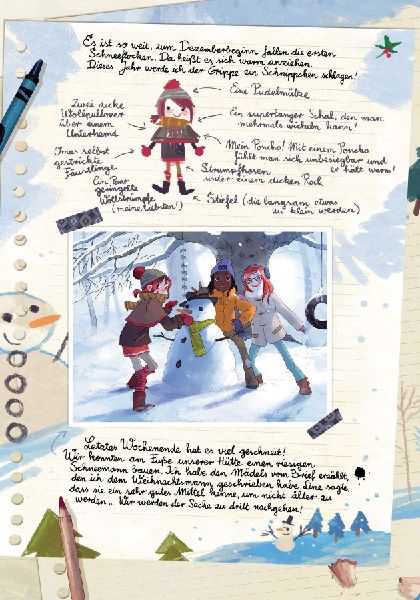 Es ist so weit, zum Dezemberbeginn fallen die ersten
Schneeflocken. Da heißt es sich warm anziehen.
Dieses Jahr werde ich der Grippe ein Schnippchen schlagen!
Eine Pudelmütze
Zwei dicke
Wollpullover
über einem
Unterhemd
Ein superlanger Schal, den man
mehrmals wickeln kann!
Omas selbst
gestrickte
Fäustlinge
Mein Poncho! Mit einem Poncho
fühlt man sich unbesiegbar und
er hält warm!
Strumpfhosen
unter einem dicken Rock
Ein Paar
geringelte
Wollstrümpfe
(meine liebsten!)
Stiefel (die langsam etwas
zu klein werden)
Letztes Wochenende hat es viel geschneit!
Wir konnten am Fuße unserer Hütte einen riesigen
Schneemann bauen. Ich habe den Mädels vom Brief erzählt,
den ich dem Weihnachtsmann geschrieben habe. Line sagte,
dass sie ein sehr gutes Mittel kenne, um nicht älter zu
werden... Wir werden der Sache zu dritt nachgehen!